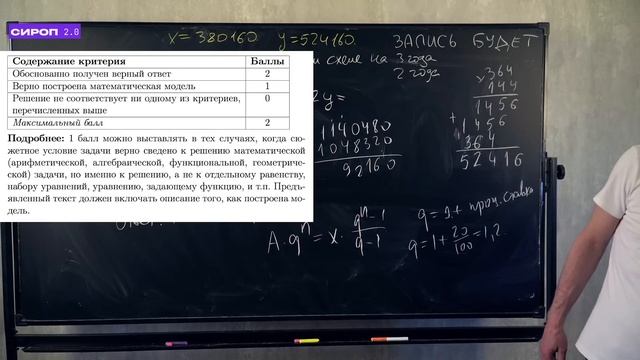 СИРОП 2.0
x = 380160 y = 524160. ЗАПИСЬ БУДЕТ
Содержание критерия Баллы
Обоснованно получен верный ответ 2
Верно построена математическая модель 1
Решение не соответствует ни одному из критериев, 0
перечисленных выше
Максимальный балл 2
Подробнее: 1 балл можно выставлять в тех случаях, когда сю-
жетное условие задачи верно сведено к решению математической
(арифметической, алгебраической, функциональной, геометриче-
ской) задачи, но именно к решению, а не к отдельному равенству,
набору уравнений, уравнению, задающему функцию, и т.п. Предъ-
явленный текст должен включать описание того, как построена мо-
дель.
схеме на 3 года
2 года
2y =
1140480
1048320
92160
× 364
144
1456
+ 1456
364
52416
A · qⁿ = x · qⁿ - 1 / q - 1
q = 1 + проц. ставка
q = 1 + 20/100 = 1,2